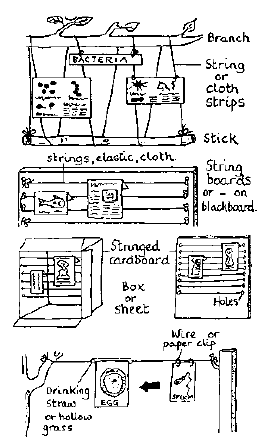 Branch
BACTERIA
String
or
cloth
strips
Stick
strings, elastic, cloth.
String
boards
or - on
blackboard.
Stringed
cardboard
Box
or
sheet
Holes
Wire or
paper clip
Drinking
straw
or hollow
grass
EGG
SPERM